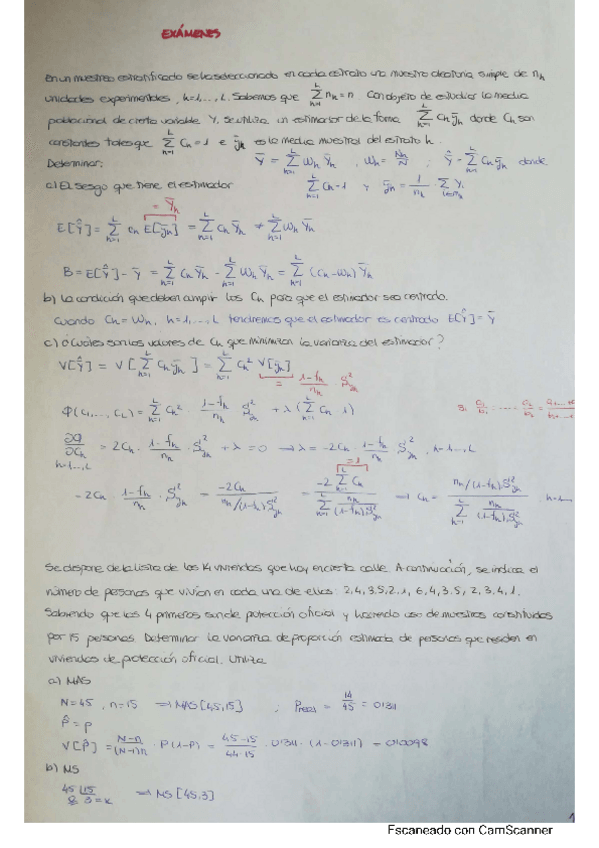 EXÁMENES
En un muestreo estratificado se ha seleccionado en cada estrato una muestra aleatoria simple de n_h
unidades experimentales, h=1,..., L. Sabemos que Σ_{h=1}^{L} n_h = n. Con objeto de estudiar la media
poblacional de cierta variable Y, se utiliza un estimador de la forma Σ_{h=1}^{L} C_h ȳ_h donde C_h son
constantes tales que Σ_{h=1}^{L} C_h = 1 e ȳ_h es la media muestral del estrato h.
Determinar: Ȳ = Σ_{h=1}^{L} W_h Ȳ_h , W_h = N_h/N ; Ŷ = Σ C_h ȳ_h donde
a) El sesgo que tiene el estimador Σ_{h=1}^{L} C_h = 1 y ȳ_h = 1/n_h · Σ Y_i
= Ȳ_h
E[Ŷ] = Σ_{h=1}^{L} C_h E[ȳ_h] = Σ_{h=1}^{L} C_h Ȳ_h ≠ Σ_{h=1}^{L} W_h Ȳ_h
B = E[Ŷ] - Ȳ = Σ_{h=1}^{L} C_h Ȳ_h - Σ_{h=1}^{L} W_h Ȳ_h = Σ_{h=1}^{L} (C_h - W_h) Ȳ_h
b) La condición que deben cumplir los C_h para que el estimador sea centrado.
Cuando C_h = W_h, h=1,..., L tendremos que el estimador es centrado E[Ŷ] = Ȳ
c) ¿Cuáles son los valores de C_h que minimizan la varianza del estimador?
V[Ŷ] = V[Σ_{h=1}^{L} C_h ȳ_h] = Σ_{h=1}^{L} C_h² V[ȳ_h]
= (1-f_h)/n_h · S²_{yh}
Φ(C_1,..., C_L) = Σ_{h=1}^{L} C_h² · (1-f_h)/n_h · S²_{yh} + λ (Σ_{h=1}^{L} C_h - 1)
∂Φ/∂C_h = 2C_h · (1-f_h)/n_h · S²_{yh} + λ = 0 → λ = -2C_h · (1-f_h)/n_h · S²_{yh}, h=1,..., L
h=1,..., L
=1
-2C_h · (1-f_h)/n_h · S²_{yh} = -2C_h / (n_h/(1-f_h)S²_{yh}) = -2 Σ_{h=1}^{L} C_h / Σ_{h=1}^{L} n_h/((1-f_h)S²_{yh}) → C_h = (n_h/(1-f_h)S²_{yh}) / Σ_{h=1}^{L} n_h/((1-f_h)S²_{yh}) , h=1...
Se dispone de la lista de las 14 viviendas que hay en cierta calle. A continuación, se indica el
número de personas que vivían en cada una de ellas: 2,4,3,5,2,1, 6,4,3,5, 2,3,4,1.
Sabiendo que las 4 primeras son de protección oficial y haciendo uso de muestras constituidas
por 15 personas. Determinar la varianza de proporción estimada de personas que residen en
viviendas de protección oficial. Utiliza
a) MAS
N=45, n=15 → MAS[45,15] , P = 14/45 = 0'311
P̂ = p
V[P̂] = (N-n)/((N-1)n) · P(1-P) = (45-15)/(44·15) · 0'311 · (1-0'311) = 0'0098
b) MS
45 |15
0 3=k → MS [45,3]
1
Escaneado con CamScanner